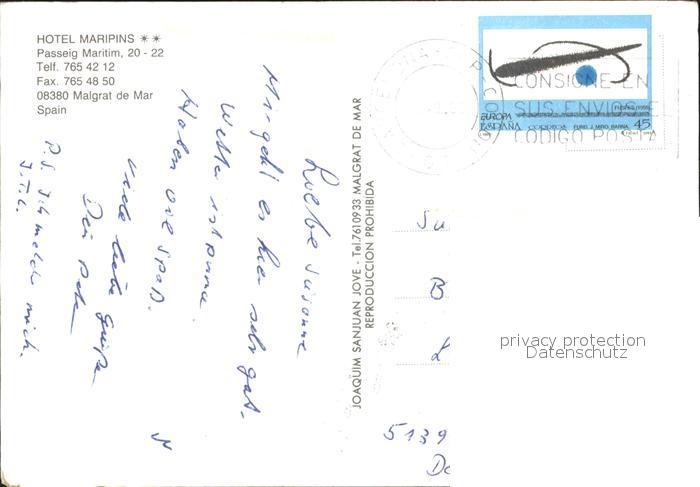 HOTEL MARIPINS ✶✶
Passeig Maritim, 20 - 22
Telf. 765 42 12
Fax. 765 48 50
08380 Malgrat de Mar
Spain
Liebe Susanne
Mir geht es hier sehr gut.
Wetter ist prima.
Haben viel Spaß.
Viele liebe Grüße
Dein Peter
P.S. Ich melde mich.
JOAQUIM SANJUAN JOVE - Tel. 7610933 MALGRAT DE MAR
REPRODUCCION PROHIBIDA
CONSIGNE EN
SUS ENVIOS
CODIGO POSTA
EUROPA
ESPAÑA
CORREOS
FUND. J. MIRO. BARNA.
45
Su
B
L
5139
De
privacy protection
Datenschutz